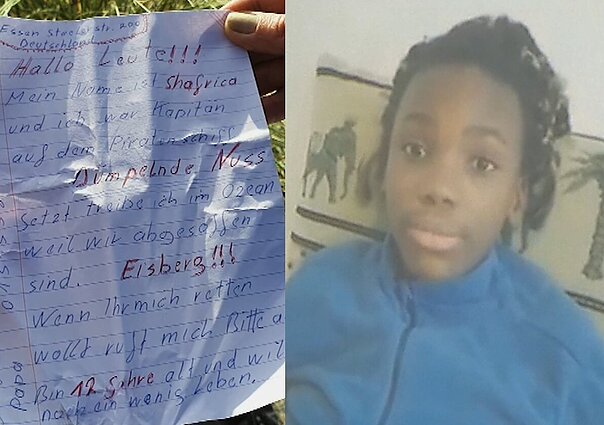 Essen Steeler str. 200
Deutschland
Hallo Leute!!!
Mein Name ist Shafrica
und ich war Kapitän
auf dem Piratenschiff
Dümpelnde Nuss
Jetzt treibe ich im Ozean
weil wir abgesoffen
sind. Eisberg!!!
Wenn Ihr mich retten
wollt ruft mich Bitte a
Bin 12 Jahre alt und wil
noch ein wenig Leben.
Papa